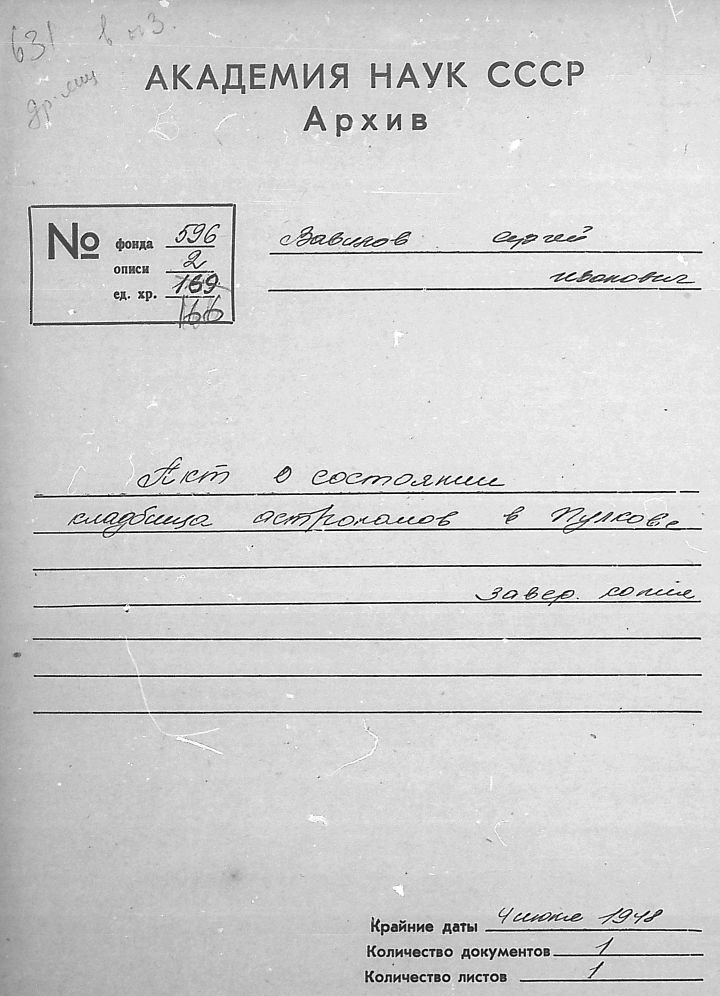 631 в
АКАДЕМИЯ НАУК СССР
Архив
№
фонда 596
описи 2
ед. хр. 169
166
Вавилов Сергей
Иванович
Акт о состоянии
кладбища астрономов в Пулкове
завер. копия
Крайние даты 4 июня 1948
Количество документов 1
Количество листов 1